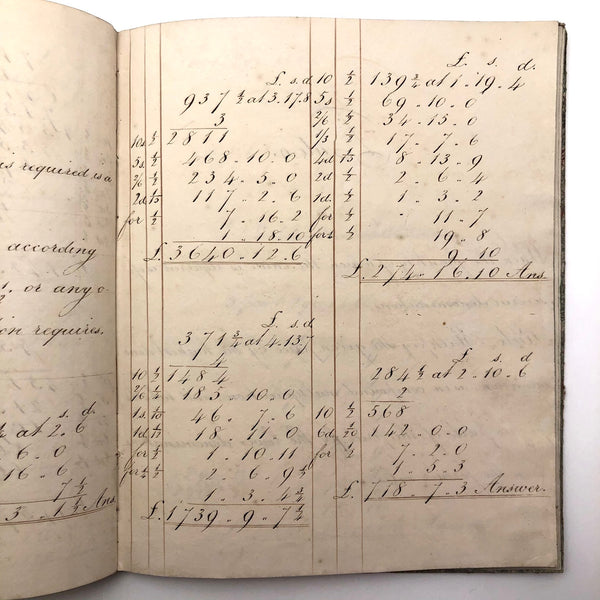 is required is a
according
or any o
ion requires.
s. d.
at 2. 6
6. 0
16. 6
7 ½
5. 1 ½ Ans.
£. s. d
937 ½ at 3. 17. 8
3
10s ½ 2811
5s ½ 468. 10. 0
2/6 ½ 234. 5. 0
2d 1/15 117. 2. 6
for ½ 7. 16. 2
1. 18. 10
£. 3640. 12. 6
£. s. d
371 ¾ at 4. 13 7
4
10 ½ 1484
2/6 ¼ 185. 10. 0
1s 1/10 46. 7. 6
1d 1/12 18. 11. 0
for ½ 1. 10. 11
for ¼ ½ 2. 6. 9 ½
1. 3. 4 ¾
£. 1739. 9. 7 ¼
£. s. d.
10 ½ 139 ¾ at 1. 19. 4
5s ½ 69. 10. 0
2/6 ½ 34. 15. 0
1/3 ½ 17. 7. 6
4d 1/15 8. 13. 9
2d ½ 2. 6. 4
1d. ½ 1. 3. 2
for ½ 11. 7
for ¼ ½ 19. 8
9. 10
£. 274. 16. 10 Ans.
£. s. d
284 ½ at 2. 10. 6
2
10 ½ 568
6d 1/20 142. 0. 0
for ½ 7. 2. 0
1. 5. 3
£. 718. 7. 3 Answer.